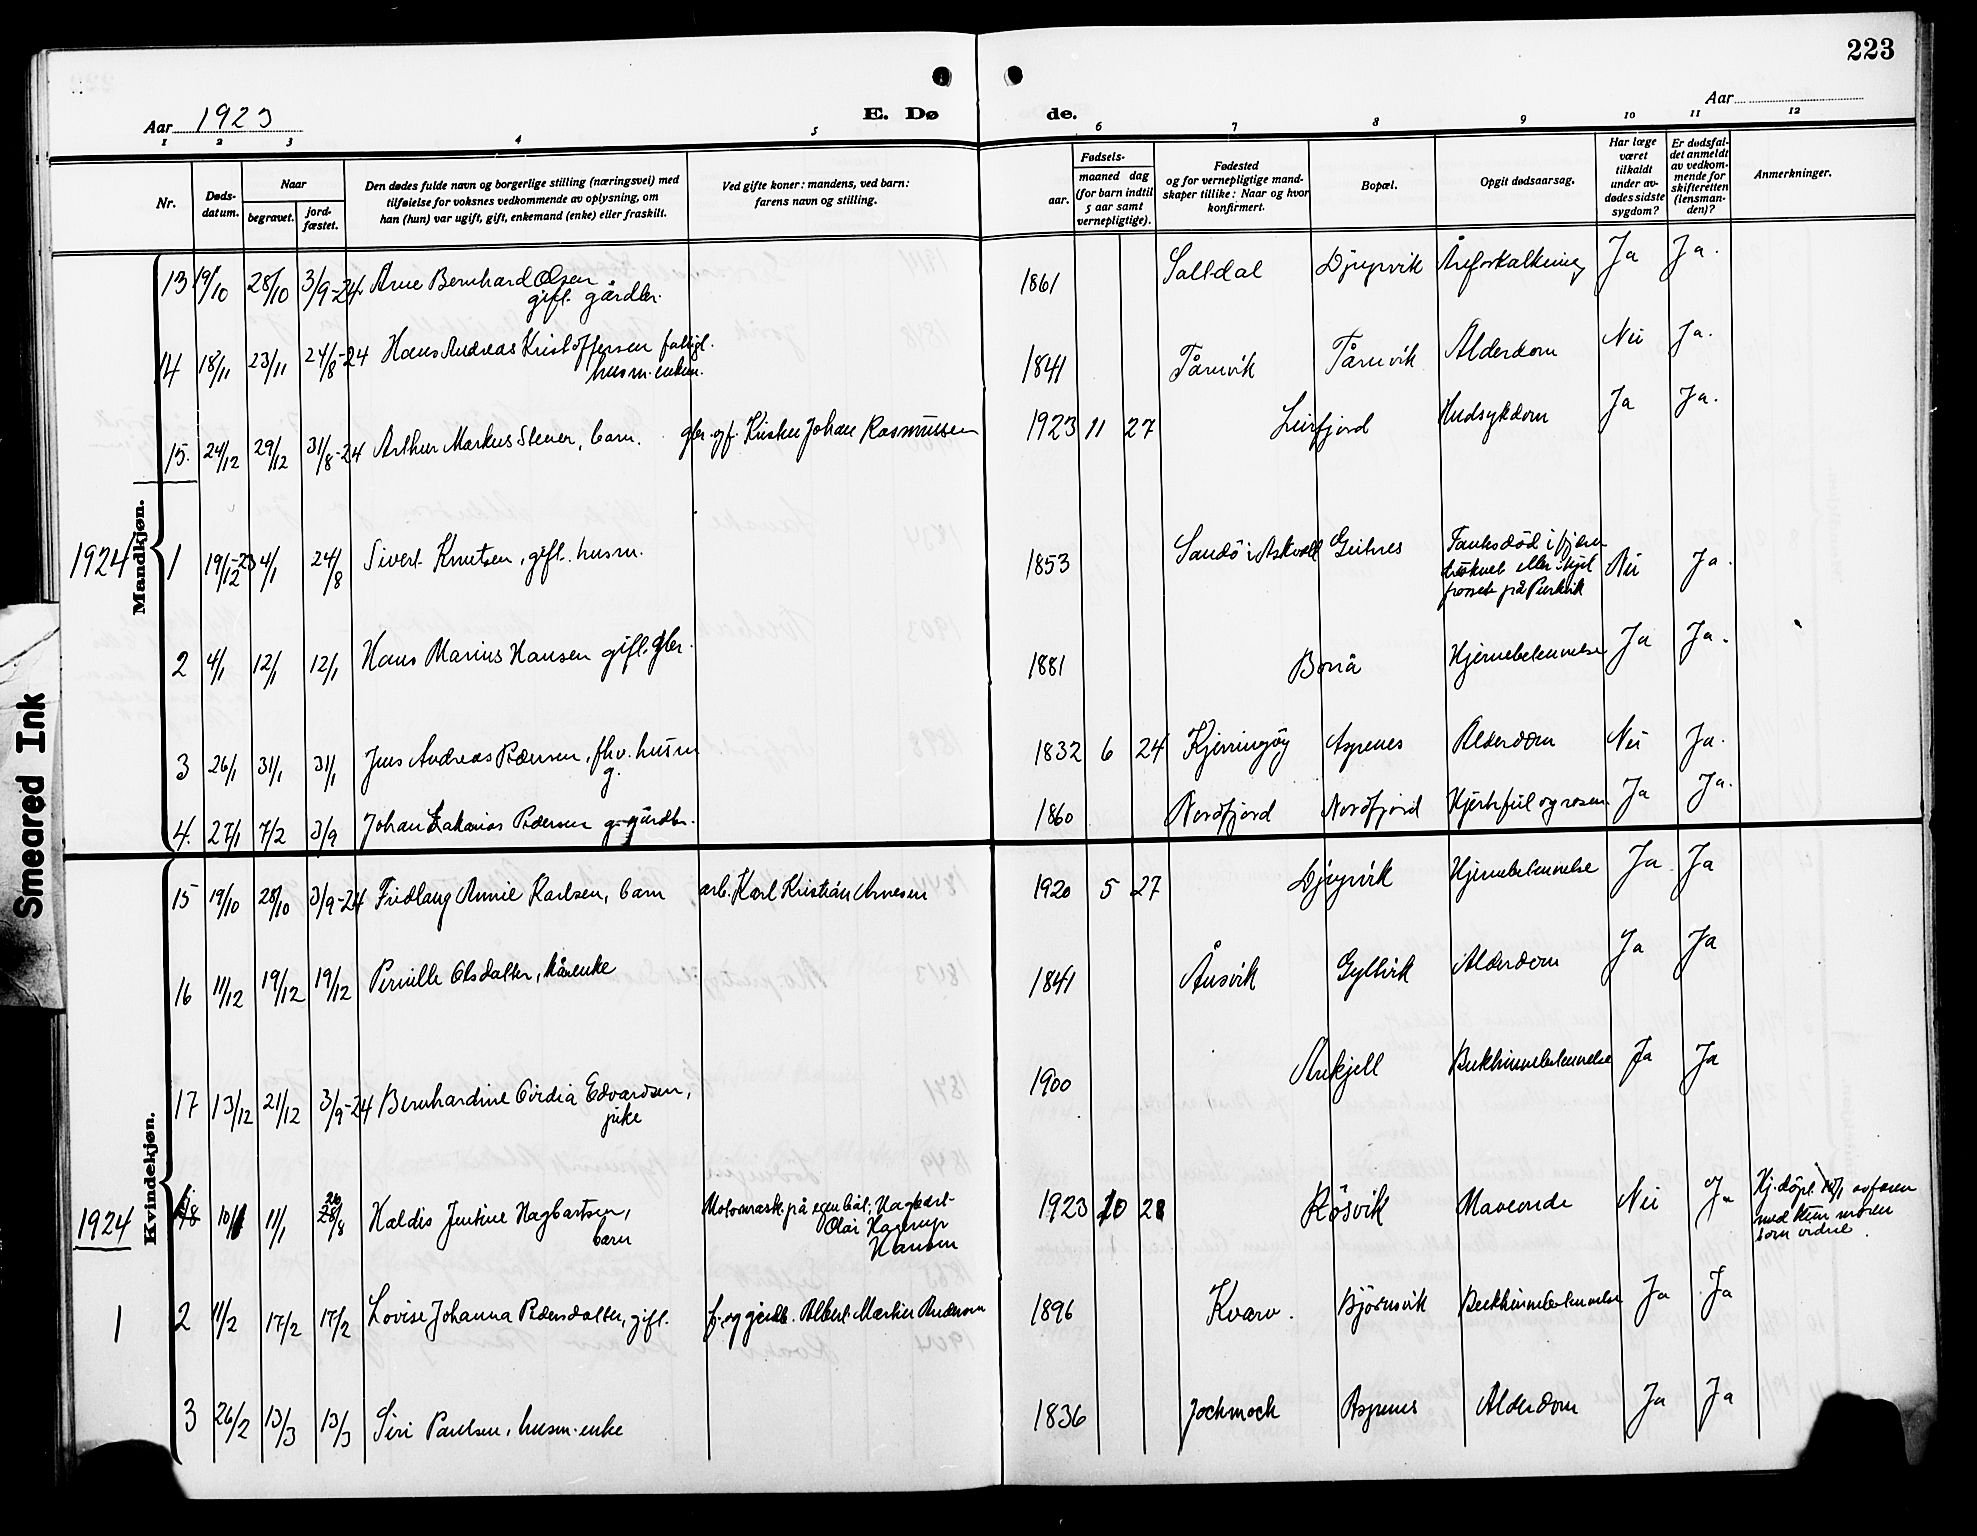 223
Aar 1923
E. Dø
de.
Aar
1 2 3 4 5 6 7 8 9 10 11 12
Nr.
Døds-
datum.
Naar
begravet.
jord-
fæstet.
Den dødes fulde navn og borgerlige stilling (næringsvei) med
tilføielse for voksnes vedkommende av oplysning, om
han (hun) var ugift, gift, enkemand (enke) eller fraskilt.
Ved gifte koner: mandens, ved barn:
farens navn og stilling.
Fødsels-
aar.
maaned dag
(for barn indtil
5 aar samt
vernepligtige).
Fødested
og for vernepligtige mand-
skaper tillike: Naar og hvor
konfirmert.
Bopæl.
Opgit dødsaarsag.
Har læge
været
tilkaldt
under av-
dødes sidste
sygdom?
Er dødsfal-
det anmeldt
av vedkom-
mende for
skifteretten
(lensman-
den)?
Anmerkninger.
Mandkjøn.
13 19/10 28/10 3/9-24 Arne Bernhard Olsen 1861 Saltdal Djupvik Åreforkalkning Ja Ja.
gift. gårdbr.
14 18/11 23/11 24/8-24 Hans Andreas Kristoffersen fattigl. 1841 Tårnvik Tårnvik Alderdom Nei Ja.
husm. enkem.
15. 24/12 29/12 31/8-24 Arthur Markus Stener, barn. gbr. og f. Kristen Johan Rasmussen 1923 11 27 Leirfjord Hudsykdom Ja Ja.
1924
1 19/12-23 4/1 24/8 Sivert Knutsen, gift. husm. 1853 Sandö i Askvoll Geitnes Nei Ja.
2 4/1 12/1 12/1 Hans Marius Hansen gift. gbr. 1881 Bonå Hjernebetennelse Ja Ja.
3 26/1 31/1 31/1 Jens Andreas Pedersen, fhv. husm 1832 6 24 Kjerringöy Aspenes Alderdom Nei Ja.
g.
4. 27/1 7/2 3/9 Johan Zakarias Pedersen g. gårdbr. 1860 Nordfjord Nordfjord Hjertefeil og rosen Ja Ja.
Kvindekjøn.
15 19/10 28/10 3/9-24 Fridlaug Annie Karlsen, barn arb. Karl Kristian Arnesen 1920 5 27 Djupvik Hjernebetennelse Ja Ja
16 11/12 19/12 19/12 Pernille Olsdatter, kårenke 1841 Ånsvik Gyltvik Alderdom Ja Ja
17 13/12 21/12 3/9-24 Bernhardine Ovidia Edvardsen, 1900 Ankjell Bukhinnebetennelse Ja Ja
pike
1924
10/1 11/1 28/8 Haldis Jentine Hagbartsen, Motormask. på egen båt, Hagbart 1923 10 28 Rösvik Maveonde Nei Ja Hj. döpt 10/1 av faren
barn Olai Hagerup med
Hansen som vidne.
1
2 11/2 17/2 17/2 Lovise Johanna Pedersdatter, gift. f. og gårdb. Albert Martin Andersen 1896 Kvarv. Björnsvik Bukhinnebetennelse Ja Ja
3 26/2 13/3 13/3 Siri Paulsen, husm. enke 1836 Jockmock Aspenes Alderdom Ja Ja
Smeared Ink